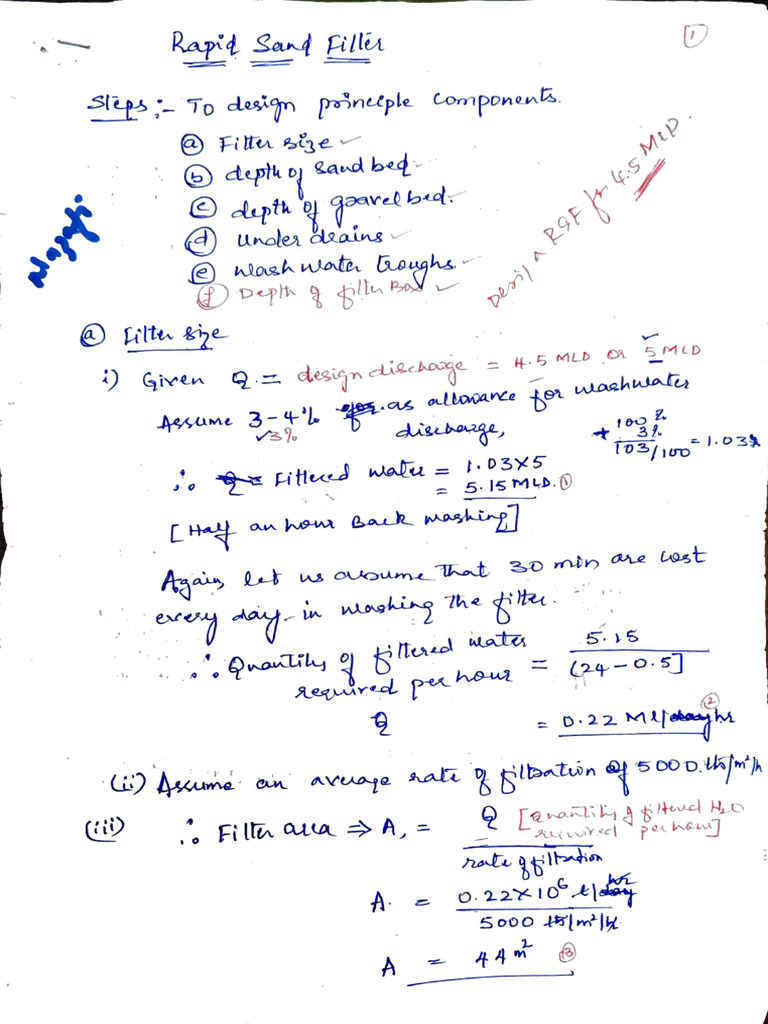 1
Rapid Sand Filter
Steps:- To design principle components.
(a) Filter size
(b) depth of sand bed
(c) depth of gravel bed.
(d) Under drains
(e) wash water troughs.
(f) Depth of filter Box
Design a RSF for 4.5 MLD.
(a) Filter size
i) Given Q = design discharge = 4.5 MLD or 5 MLD
Assume 3-4% as allowance for washwater
3%
discharge,
100%
+ 3%
103/100 = 1.03%
∴ Filtered water = 1.03×5
= 5.15 MLD. (1)
[Half an hour Back washing]
Again, let us assume that 30 min are lost
every day in washing the filter.
∴ Quantity of filtered water
required per hour = 5.15 / (24-0.5]
Q = 0.22 Ml/hr (2)
(ii) Assume an average rate of filtration of 5000 lts/m²/h
(iii) ∴ Filter area ⇒ A, = Q [Quantity of filtered H2O
required per hour]
rate of filtration
A. = 0.22×10⁶ l/hr
5000 lt/m²/hr
A = 44 m² (3)